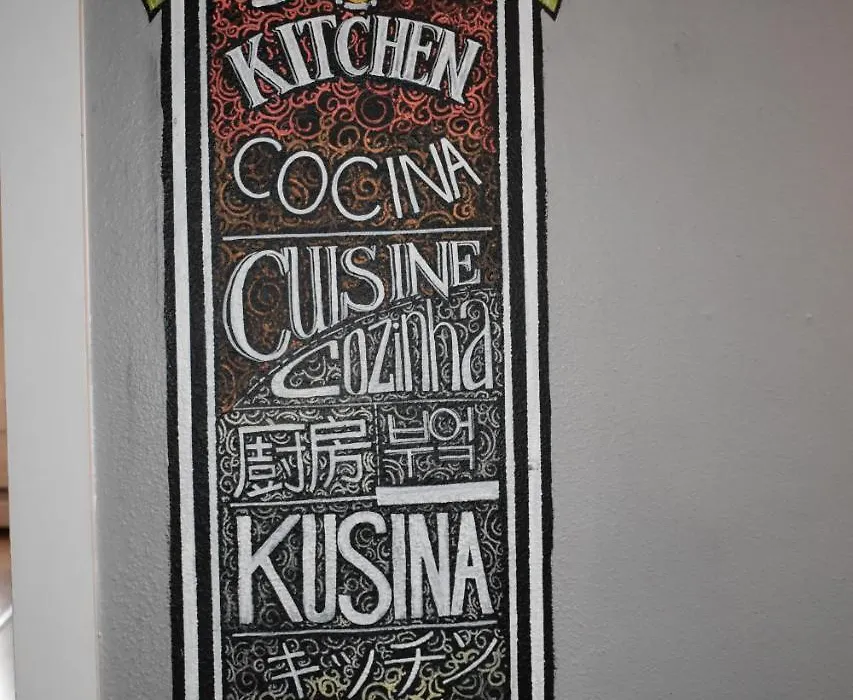 KITCHEN
COCINA
CUISINE
Cozinha
廚房 부엌
KUSINA
キッチン